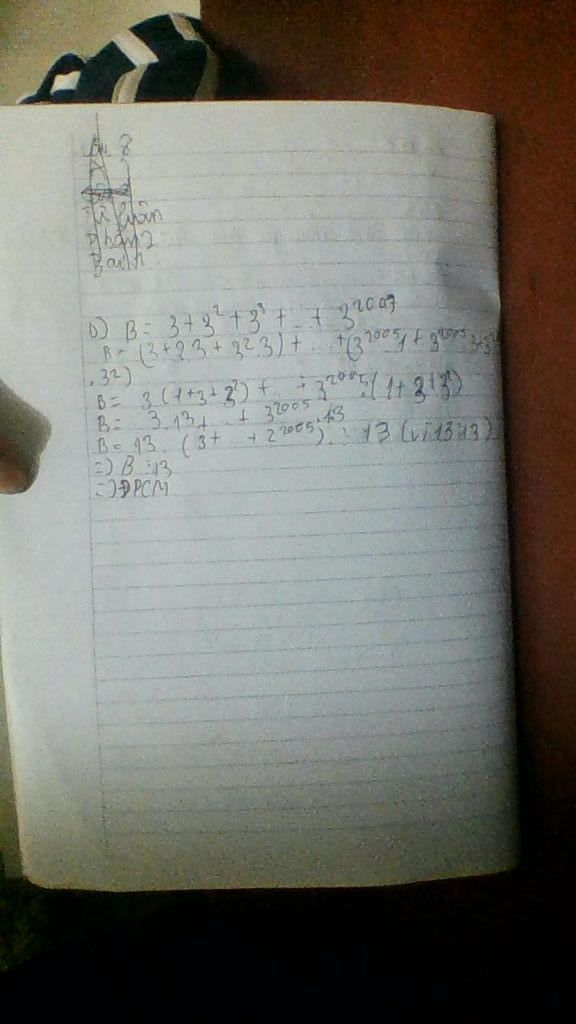 8
Tự luận
Phần 2
Bài 1
b) B = 3 + 3² + 3³ + ... + 3²⁰⁰⁷
B = (3 + 3.3 + 3².3) + ... + (3²⁰⁰⁵.1 + 3²⁰⁰⁵.3 + 3²⁰⁰⁵
.3²)
B = 3(1+3+3²) + ... + 3²⁰⁰⁵.(1+3+3²)
B = 3.13 + ... + 3²⁰⁰⁵.13
B = 13.(3 + ... + 2²⁰⁰⁵) ⋮ 13 (vì 13 ⋮ 13)
=> B ⋮ 13
=> ĐPCM